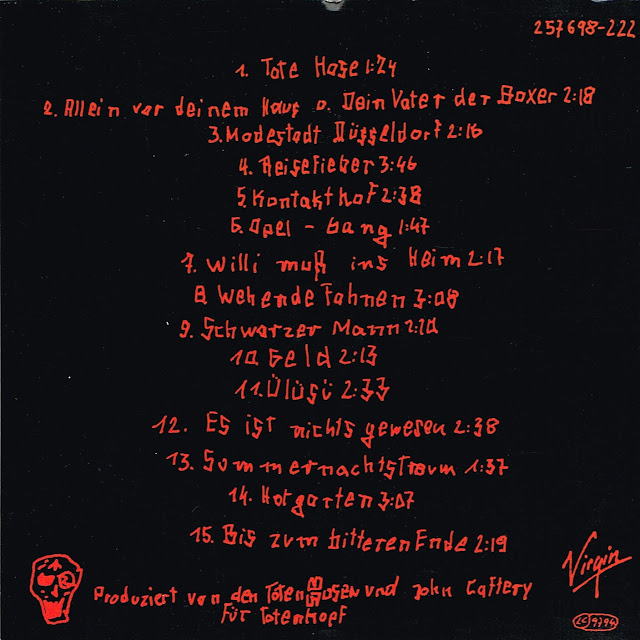 257698-222
1. Tote Hose 1:24
2. Allein vor deinem Haus o. Dein Vater der Boxer 2:18
3. Modestadt Düsseldorf 2:16
4. Reisefieber 3:46
5. Kontakthof 2:38
6. Opel - Gang 1:47
7. Willi muß ins Heim 2:17
8 Wehende Fahnen 3:08
9. Schwarzer Mann 2:20
10. Geld 2:13
11. Ülüsü 2:33
12. Es ist nichts gewesen 2:38
13. Sommernachtstraum 1:37
14. Hofgarten 3:07
15. Bis zum bitteren Ende 2:19
Virgin
Produziert von den Toten Hosen und John Caffery
Für Totenkopf
LC 9794